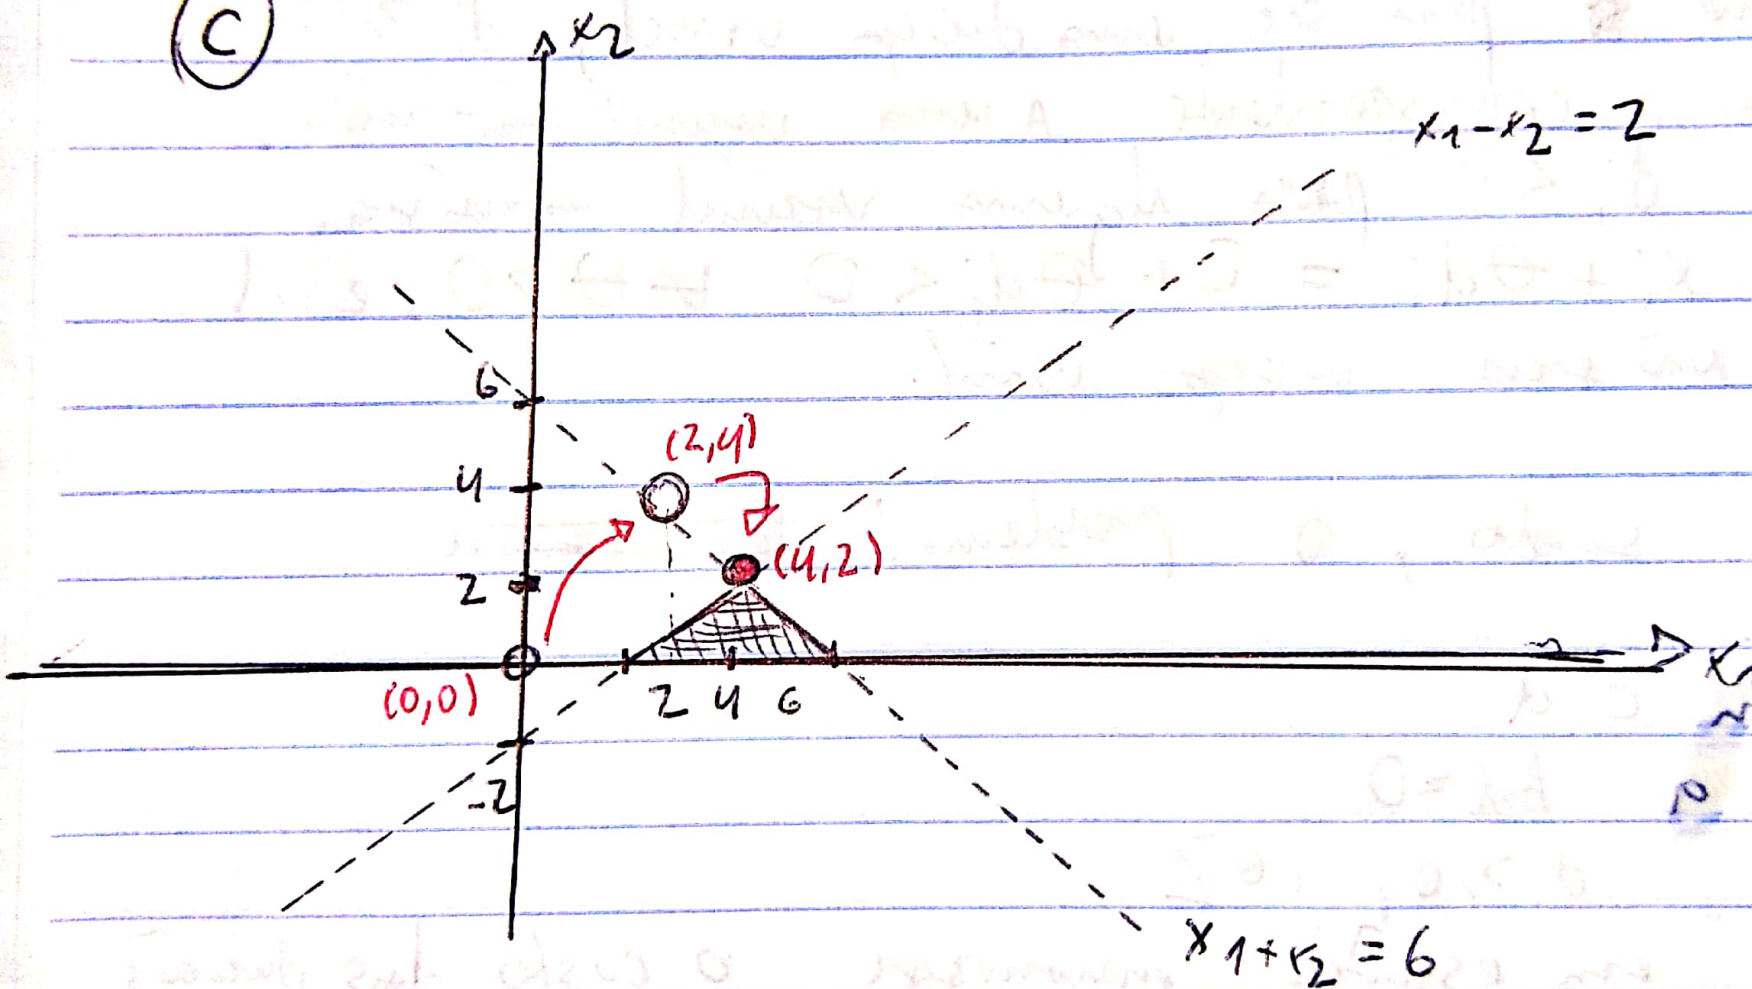 C
x2
x1-x2 = 2
6
(2,4)
4
(4,2)
2
(0,0)
2 4 6
x1
-2
x1+x2 = 6